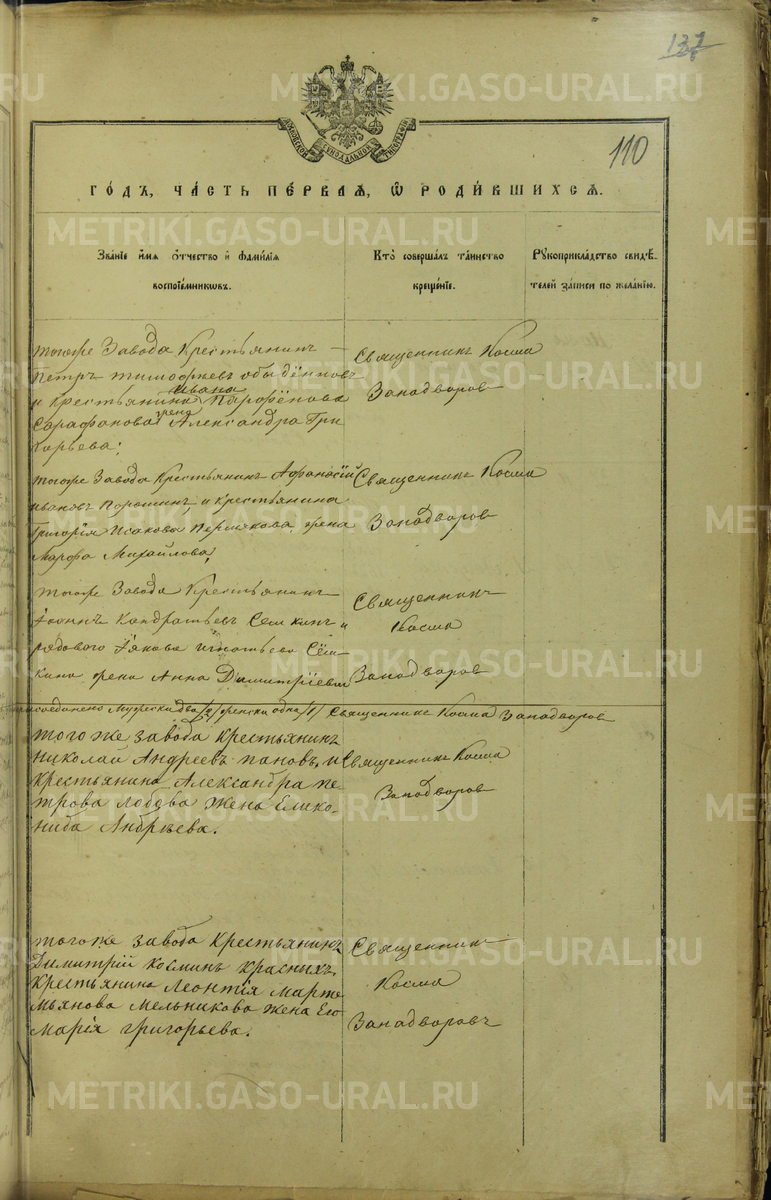 137
110
МОСКОВСКОЙ СѴНОДАЛЬНОЙ ТИПОГРАФІИ
ГО́ДЪ, ЧА́СТЬ ПЕ́РВАѦ, Ѡ҆ РОДИ́ВШИХСѦ.
Зва́ніе и҆́мѧ ѻ҆́тчество и҆ фами́лїѧ
воспрїе́мникѡвъ.
Кто̀ соверша́лъ та́инство
креще́нїе.
Рꙋкоприкла́дство свидѣ́-
телей за́писи по жела́нїю.
тогоже Завода Крестьянинъ
Петръ Тимофѣевъ Обыдённовъ
Ивана
и Крестьянина Парфёнова
Сарафанова жена Александра Гри
горьева;
Священникъ Косма
Западворовъ
тогоже Завода Крестьянинъ Афанасій
Ивановъ Порошинъ, и крестьянина
Григорія Исакова Пермякова, жена
Марфа Михайлова;
Священникъ Косма
Западворовъ
тогоже Завода Крестьянинъ
Іоаннъ Кондратьевъ Семкинъ и
рядового Іякова Игнатьева Сём-
кина жена Анна Димитріева
Священникъ
Косма
Западворовъ
Мужески два /2/ женска одна /1/ Священникъ Косма Западворовъ
того же завода крестьянинъ
Николай Андреевъ Пановъ, и
Крестьянина Александра Пе-
трова Лобова жена Елико-
нида Андрѣева.
Священникъ Косма
Западворовъ
того же завода Крестьянинъ
Димитрій Косминъ Красныхъ,
Крестьянина Леонтія Марте
мьянова Мельникова жена Его
Марія Григорьева.
Священникъ
Косма
Западворовъ
METRIKI.GASO-URAL.RU